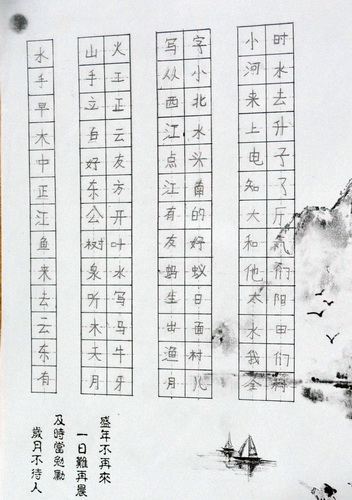 时水去升子了斤们阳申们
小河来上电知大和他太水我全
字小北水头南的好蚁日面村儿
写从西江点江有友蚂生出渔月
火王正云友方开叶水写马牛牙
山手立白好东公树泉听木天月
水手早木中正江鱼来去云东有
盛年不再來
一日難再晨
及時當勉勵
歲月不待人